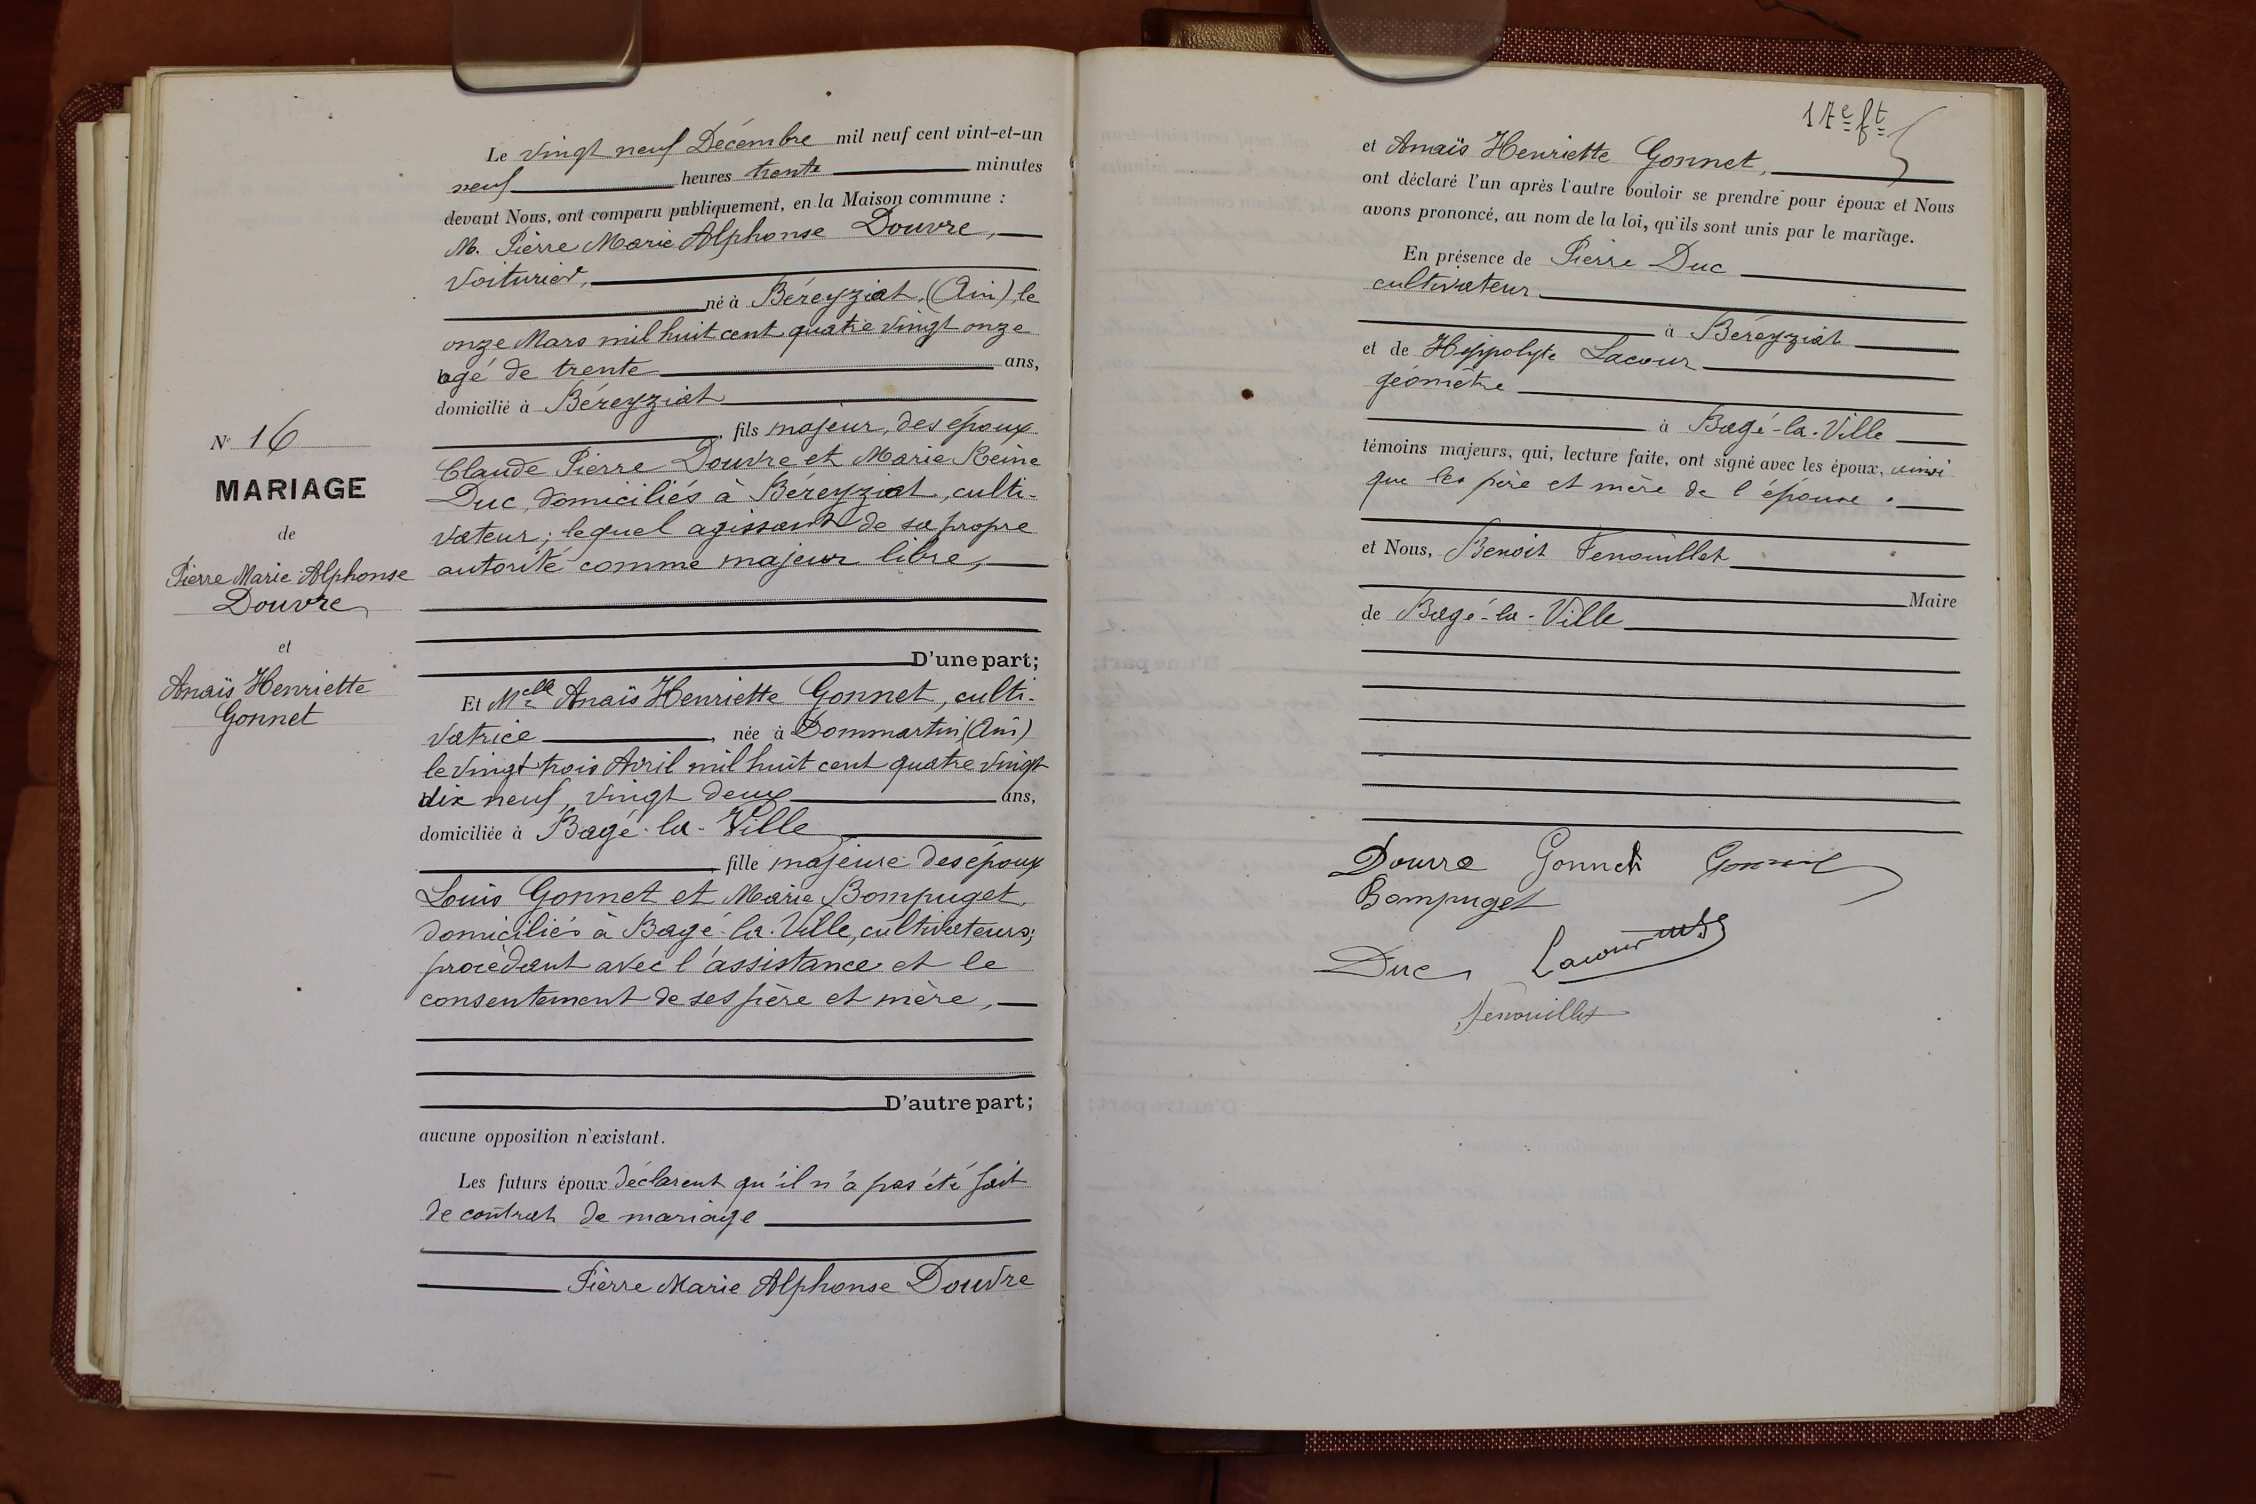 Le vingt neuf Décembre mil neuf cent vint-et-un
neuf heures trente minutes
devant Nous, ont comparu publiquement, en la Maison commune :
M. Pierre Marie Alphonse Douvre,
voiturier,
né à Béreyziat, (Ain), le
onze Mars mil huit cent quatre vingt onze
agé de trente ans,
domicilié à Béreyziat
, fils majeur, des époux
Claude Pierre Douvre et Marie Reine
Duc, domiciliés à Béreyziat, culti-
vateur; lequel agissant de sa propre
autorité comme majeur libre,
D'une part;
Nº 16
MARIAGE
de
Pierre Marie Alphonse
Douvre
et
Anaïs Henriette
Gonnet
Et Melle Anaïs Henriette Gonnet, culti-
vatrice, née à Dommartin (Ain)
le vingt trois Avril mil huit cent quatre vingt
dix neuf, vingt deux ans,
domiciliée à Bagé-la-Ville
, fille majeure des époux
Louis Gonnet et Marie Bompuget,
domiciliés à Bagé-la-Ville, cultivateurs;
procédant avec l'assistance et le
consentement de ses père et mère,
D'autre part;
aucune opposition n'existant.
Les futurs époux déclarent qu'il n'a pas été fait
de contrat de mariage
Pierre Marie Alphonse Douvre
17e ft
et Anaïs Henriette Gonnet,
ont déclaré l'un après l'autre vouloir se prendre pour époux et Nous
avons prononcé, au nom de la loi, qu'ils sont unis par le mariage.
En présence de Pierre Duc
cultivateur
à Béreyziat
et de Hyppolyte Lacour
géomètre
à Bagé-la-Ville
témoins majeurs, qui, lecture faite, ont signé avec les époux, ainsi
que les père et mère de l'épouse.
et Nous, Benoit Fenouillet
Maire
de Bagé-la-Ville
Douvre Gonnet Gonnet
Bompuget
Duc Lacour
Fenouillet